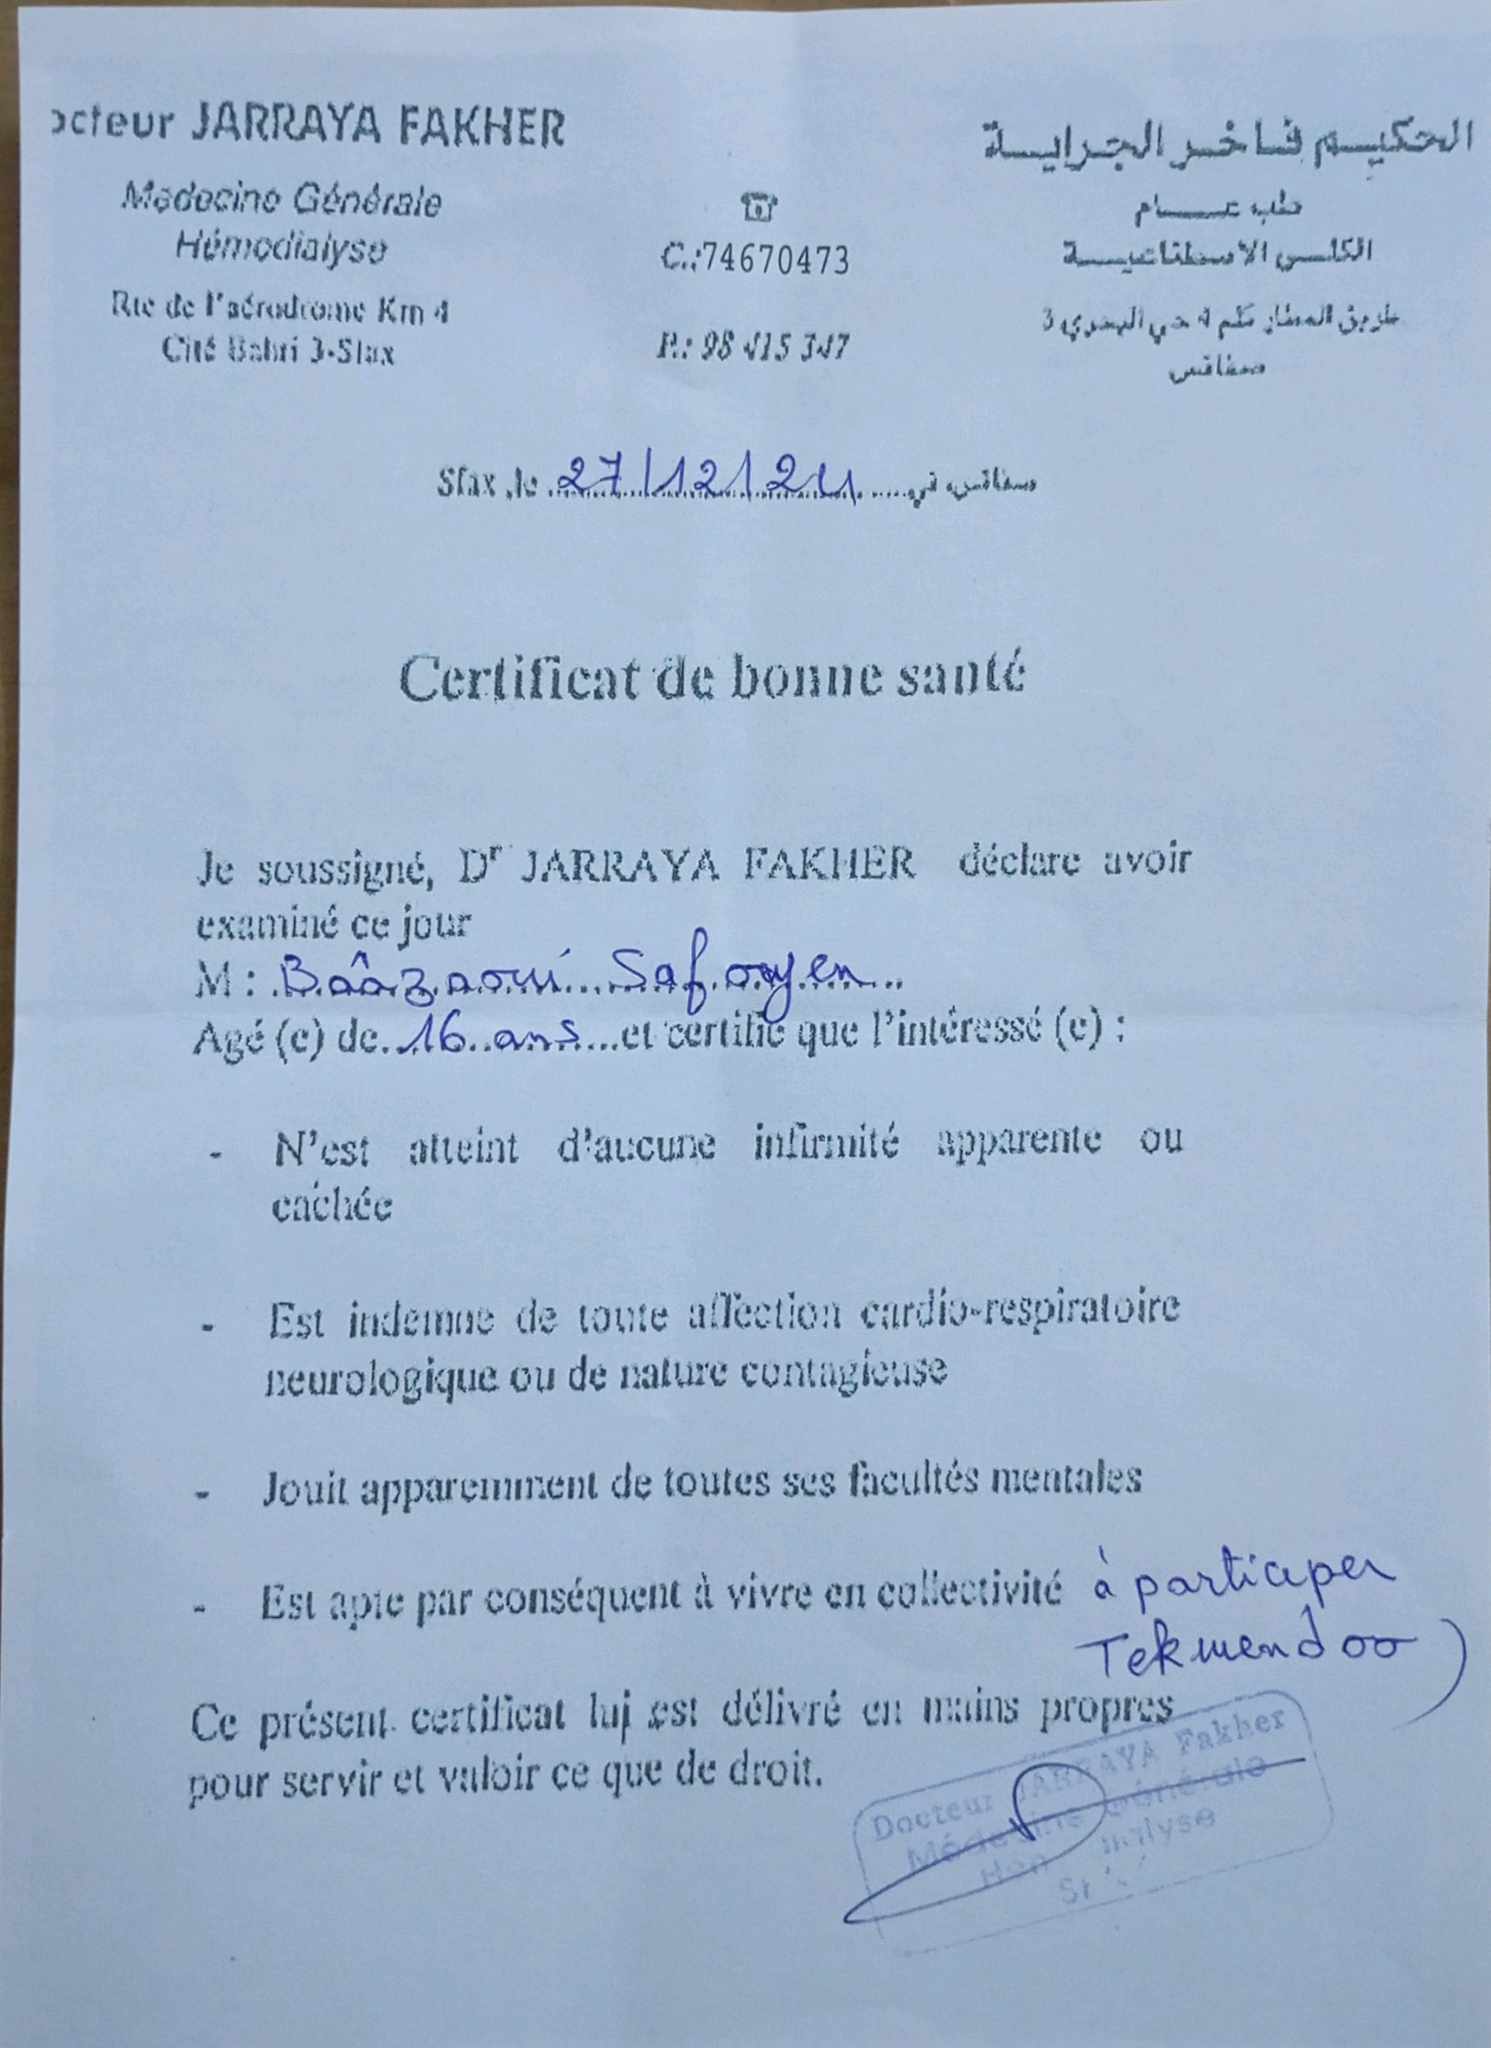 octeur JARRAYA FAKHER
Médecine Générale
Hémodialyse
Rte de l'aérodrome Km 4
Cité Bahri 3-Sfax
C.:74670473
P.: 98 415 347
الحكيم فاخر الجراية
طب عام
الكلى الاصطناعية
طريق المطار كلم 4 حي البحري 3
صفاقس
Sfax ,le 27/12/24 صفاقس، في
Certificat de bonne santé
Je soussigné, Dr JARRAYA FAKHER déclare avoir
examiné ce jour
M : Bâazaoui Safouyen
Agé (e) de 16 ans et certifie que l'intéressé (e) :
- N'est atteint d'aucune infirmité apparente ou
cachée
- Est indemne de toute affection cardio-respiratoire
neurologique ou de nature contagieuse
- Jouit apparemment de toutes ses facultés mentales
- Est apte par conséquent à vivre en collectivité à participer
Tekwendoo)
Ce présent certificat lui est délivré en mains propres
pour servir et valoir ce que de droit.
Docteur JARRAYA Fakher
Médecine Générale